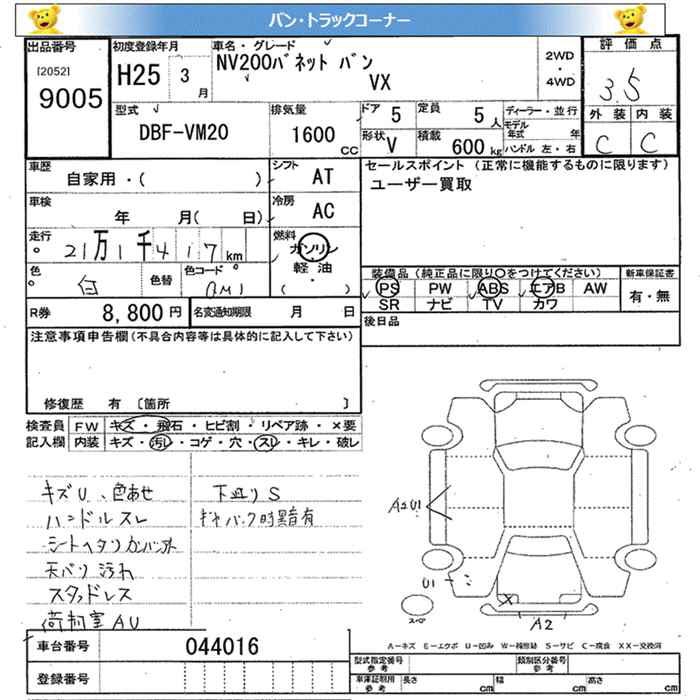 バン・トラックコーナー
出品番号
[2052]
9005
初度登録年月
H25 3
月
車名・グレード
NV200バネット バン
VX
2WD
・
4WD
評価点
3.5
外装 内装
C C
型式
DBF-VM20
排気量
1600
cc
ドア 5
定員 5 人
形状 V
積載 600 kg
ディーラー・並行
モデル年式 年
ハンドル 左・右
車歴
自家用・( )
シフト AT
車検
年 月( 日)
冷房 AC
走行
21万1千417 km
燃料
ガソリン
・
軽油
( )
色
白
色替
色コード
QM1
R券 8,800 円
名変通知期限 月 日
セールスポイント (正常に機能するものに限ります)
ユーザー買取
装備品 (純正品に限り○をつけてください)
PS PW ABS エアB AW
SR ナビ TV カワ
新車保証書
有・無
後日品
注意事項申告欄(不具合内容等は具体的に記入して下さい)
修復歴 有 [箇所 ]
検査員
記入欄
FW キズ・飛石・ヒビ割・リペア跡・×要
内装 キズ・汚れ・コゲ・穴・スレ・キレ・破レ
キズU、色あせ
ハンドルスレ
シートヘタリ
天バリ汚れ
スタッドレス
荷物室AU
下廻りS
ギヤバック時異音有
A2U1
U1
X
A2
スペア
A-キズ E-エクボ U-凹み W-補修跡 S-サビ C-腐食 XX-交換済
車台番号 044016
登録番号
型式指定番号
参考
類別区分番号
参考
車庫証明用
参考
長さ cm 幅 cm 高さ cm